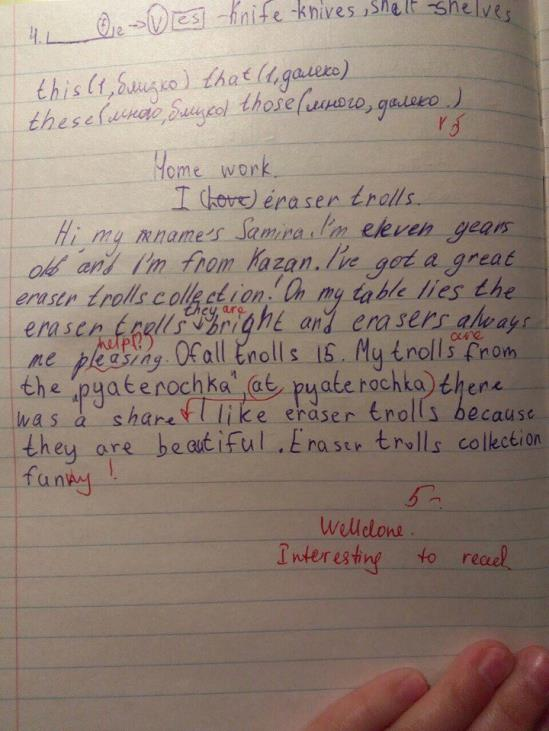 4. f, fe → v es - knife - knives, shelf - shelves
this (1, близко) that (1, далеко)
these (много, близко) those (много, далеко.)
r 5
Home work.
I (Love) eraser trolls.
Hi, my name's Samira. I'm eleven years
old and I'm from Kazan. I've got a great
eraser trolls collection! On my table lies the
they are
eraser trolls bright and erasers always
help(?) are
me pleasing. Of all trolls 15. My trolls from
the "pyaterochka", (at pyaterochka) there
was a share I like eraser trolls because
they are beautiful. Eraser trolls collection
funny!
5-
Welldone.
Interesting to read